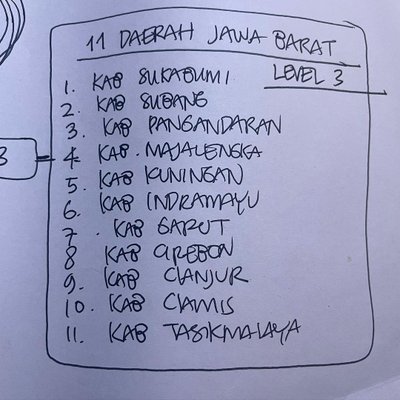 11 DAERAH JAWA BARAT
LEVEL 3
1. KAB SUKABUMI
2. KAB SUBANG
3. KAB PANGANDARAN
3
4. KAB. MAJALENGKA
5. KAB KUNINGAN
6. KAB INDRAMAYU
7. KAB GARUT
8 KAB CIREBON
9. KAB CIANJUR
10. KAB CIAMIS
11. KAB TASIKMALAYA